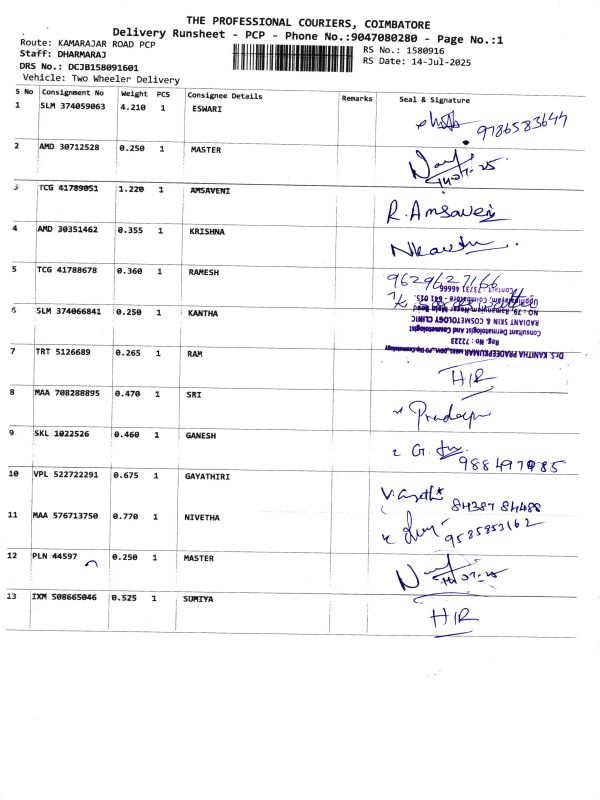 THE PROFESSIONAL COURIERS, COIMBATORE
Delivery Runsheet - PCP - Phone No.:9047080280 - Page No.:1
Route: KAMARAJAR ROAD PCP
Staff: DHARMARAJ
DRS No.: DCJB158091601
Vehicle: Two Wheeler Delivery
RS No.: 1580916
RS Date: 14-Jul-2025
S No Consignment No Weight PCS Consignee Details Remarks Seal & Signature
1 SLM 374059063 4.210 1 ESWARI 9786583644
2 AMD 30712528 0.250 1 MASTER 14-07-25
3 TCG 41789051 1.220 1 AMSAVENI R. Amsaveni
4 AMD 30351462 0.355 1 KRISHNA
5 TCG 41788678 0.360 1 RAMESH 9629627166
6 SLM 374066841 0.250 1 KANTHA
Dr.S. KANITHA PRADEEPKUMAR
Reg. No : 72223
Consultant Dermatologist And Cosmetologist
RADIANT SKIN & COSMETOLOGY CLINIC
NO : 79, Ramanujam Nagar Main Road
Uppilipalayam, Coimbatore - 641 015.
Contact : 73731 46666
7 TRT 5126689 0.265 1 RAM H/R
8 MAA 708288895 0.470 1 SRI Pradeep
9 SKL 1022526 0.460 1 GANESH G.
10 VPL 522722291 0.675 1 GAYATHIRI V. Gayathi 84387 84488
11 MAA 576713750 0.770 1 NIVETHA 9585853162
12 PLN 44597 0.250 1 MASTER 14-07-25
13 IXM 508665046 0.525 1 SUMIYA H/R